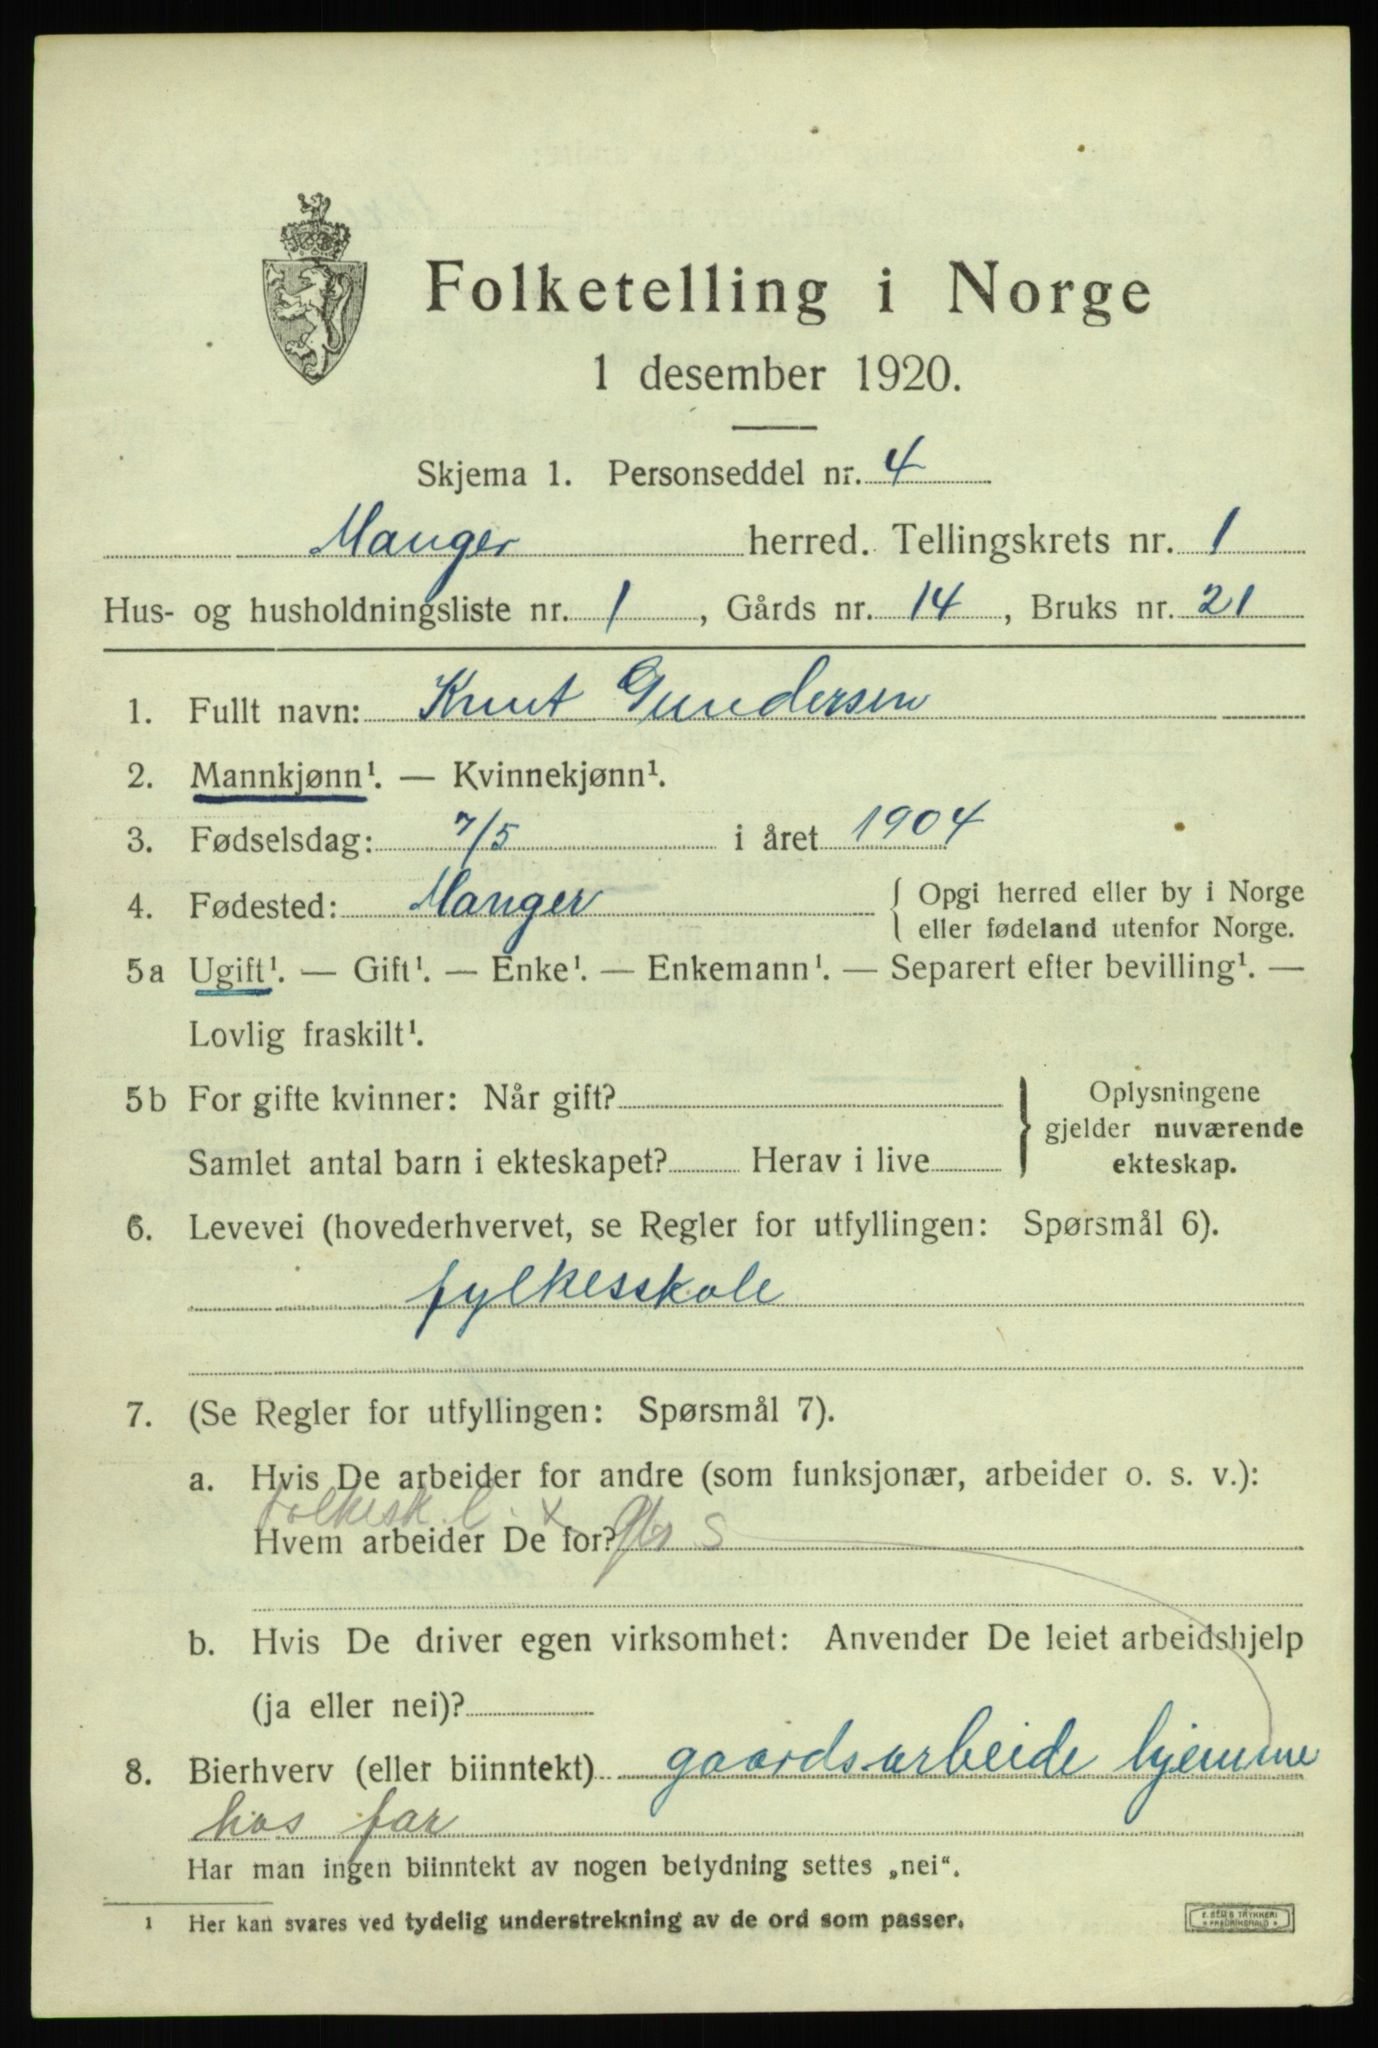 Folketelling i Norge
1 desember 1920.
Skjema 1. Personseddel nr. 4
Manger herred. Tellingskrets nr. 1
Hus- og husholdningsliste nr. 1, Gårds nr. 14, Bruks nr. 21
1. Fullt navn: Knut Gundersen
2. Mannkjønn¹. — Kvinnekjønn¹.
3. Fødselsdag: 7/5 i året 1904
4. Fødested: Manger { Opgi herred eller by i Norge
eller fødeland utenfor Norge.
5a Ugift¹. — Gift¹. — Enke¹. — Enkemann¹. — Separert efter bevilling¹. —
Lovlig fraskilt¹.
5b For gifte kvinner: Når gift? } Oplysningene
gjelder nuværende
Samlet antal barn i ekteskapet? Herav i live
ekteskap.
6. Levevei (hovederhvervet, se Regler for utfyllingen: Spørsmål 6).
fylkesskole
7. (Se Regler for utfyllingen: Spørsmål 7).
a. Hvis De arbeider for andre (som funksjonær, arbeider o. s. v.):
Hvem arbeider De for? s
b. Hvis De driver egen virksomhet: Anvender De leiet arbeidshjelp
(ja eller nei)?
8. Bierhverv (eller biinntekt) gaardsarbeide hjemme
hos far
Har man ingen biinntekt av nogen betydning settes „nei“.
¹ Her kan svares ved tydelig understrekning av de ord som passer.